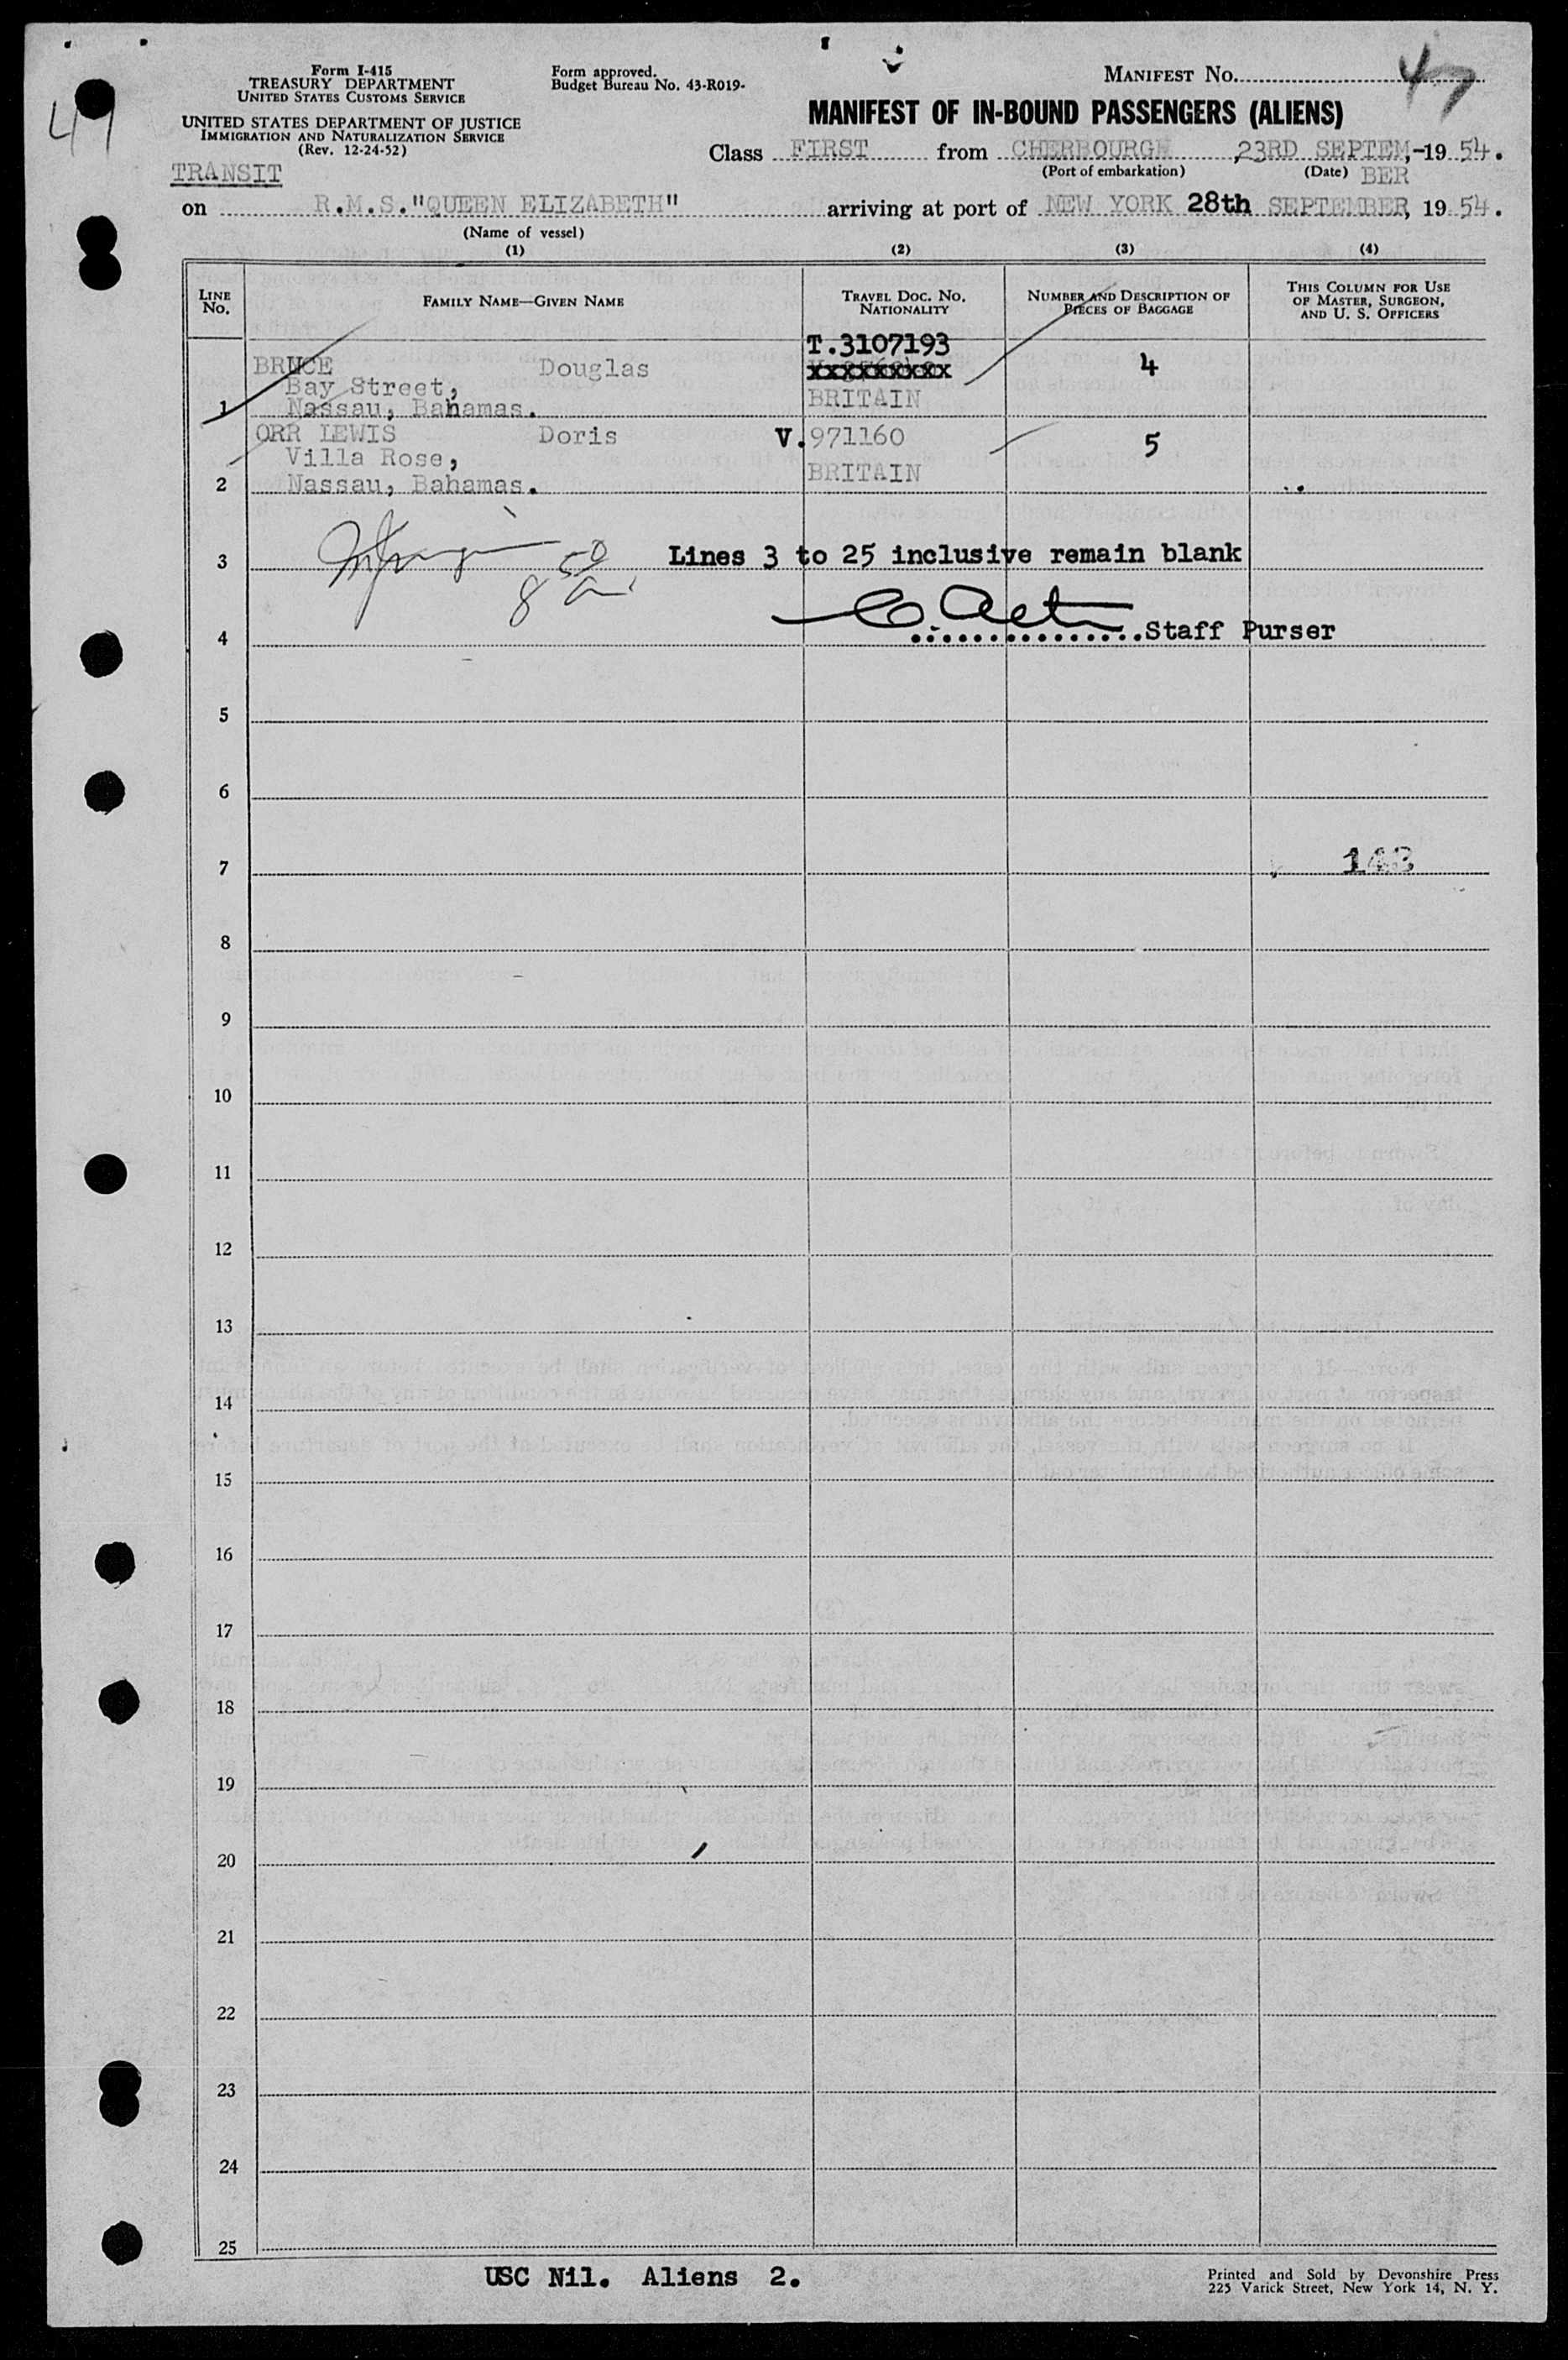 Form I-415
TREASURY DEPARTMENT
UNITED STATES CUSTOMS SERVICE
UNITED STATES DEPARTMENT OF JUSTICE
IMMIGRATION AND NATURALIZATION SERVICE
(Rev. 12-24-52)
Form approved.
Budget Bureau No. 43-R019-
MANIFEST NO. 47
49
MANIFEST OF IN-BOUND PASSENGERS (ALIENS)
Class FIRST from CHERBOURG 23RD SEPTEM,-19 54.
(Port of embarkation) (Date) BER
TRANSIT
on R.M.S."QUEEN ELIZABETH" arriving at port of NEW YORK 28th SEPTEMBER, 19 54.
(Name of vessel)
(1) (2) (3) (4)
LINE NO. FAMILY NAME—GIVEN NAME TRAVEL DOC. NO. NATIONALITY NUMBER AND DESCRIPTION OF PIECES OF BAGGAGE THIS COLUMN FOR USE OF MASTER, SURGEON, AND U. S. OFFICERS
T.3107193
BRUCE Douglas xxxxxxxxx 4
Bay Street,
1 Nassau, Bahamas. BRITAIN
ORR LEWIS Doris V.971160 5
Villa Rose,
2 Nassau, Bahamas. BRITAIN
3 Lines 3 to 25 inclusive remain blank
8 50
4 Staff Purser
5
6
7 143
8
9
10
11
12
13
14
15
16
17
18
19
20
21
22
23
24
25
USC Nil. Aliens 2.
Printed and Sold by Devonshire Press
225 Varick Street, New York 14, N. Y.